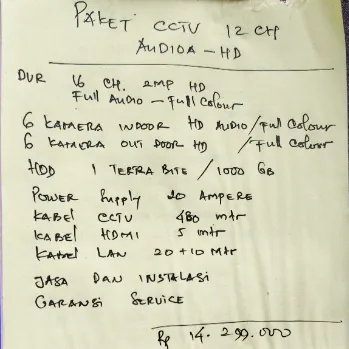 PAKET CCTV 12 CH
AUDIOA - HD
DVR 16 CH. 2MP HD
Full Audio - Full Colour
6 KAMERA INDOOR HD AUDIO / Full Colour
6 KAMERA OUT DOOR HD / Full Colour
HDD 1 TERRA BITE / 1000 GB
POWER Supply 20 AMPERE
KABEL CCTV 480 mtr
KABEl HDMI 5 mtr
KABEl LAN 20 + 10 Mtr
JASA DAN INSTALASi
GARANSI SERVICE
Rp 14. 299.000